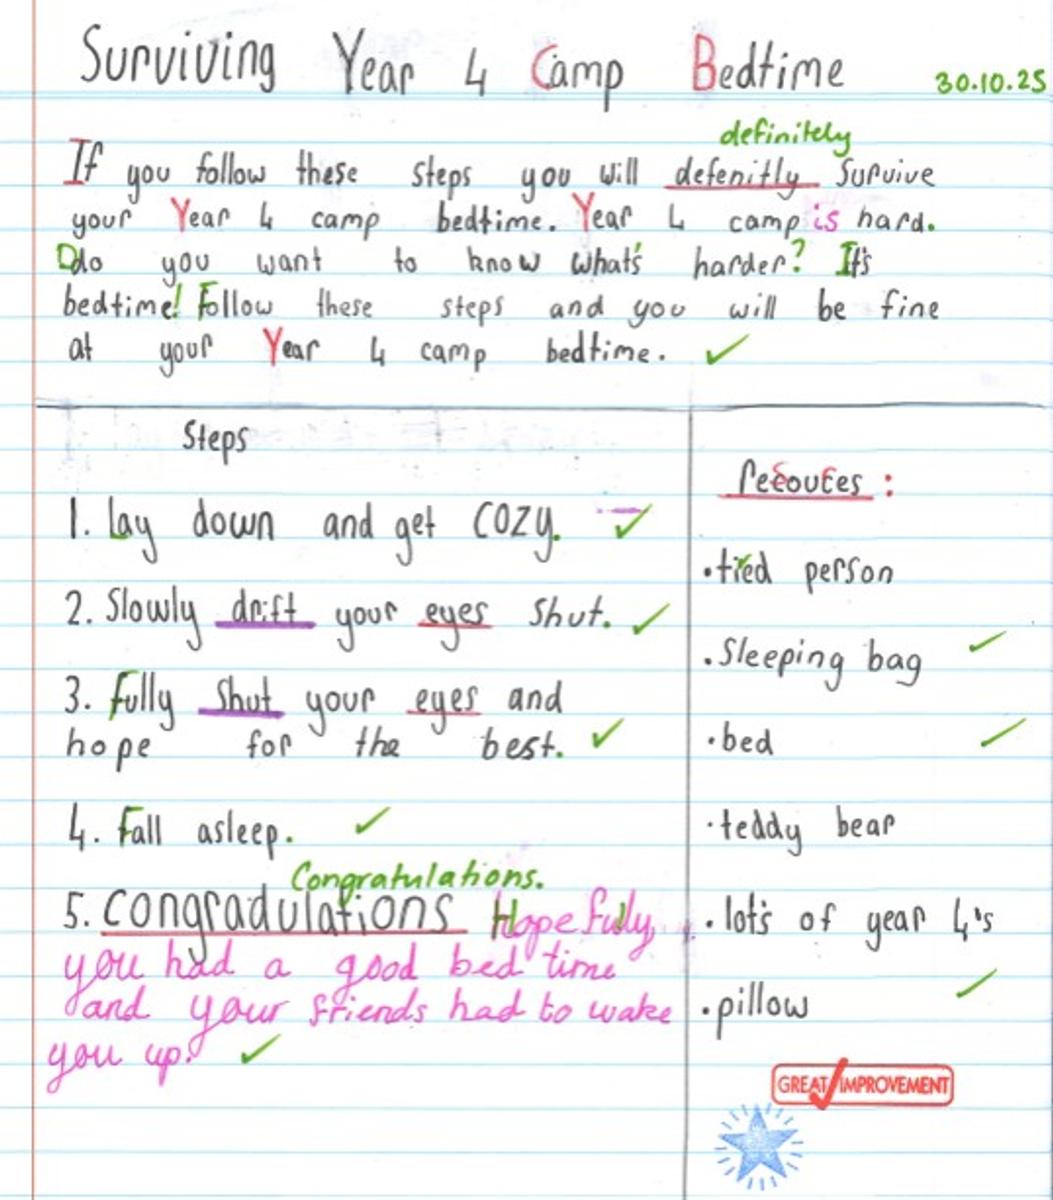 Surviving Year 4 Camp Bedtime 30.10.25
definitely
If you follow these steps you will defenitly survive
your Year 4 camp bedtime. Year 4 camp is hard.
Ddo you want to know what's harder? It's
bedtime! Follow these steps and you will be fine
at your Year 4 camp bedtime.
Steps
1. Lay down and get cozy.
2. Slowly drift your eyes shut.
3. Fully shut your eyes and
hope for the best.
4. Fall asleep.
Congratulations.
5. congradulations Hopefully
you had a good bed time
and your friends had to wake
you up.
:
• tired person
• Sleeping bag
• bed
• teddy bear
• lots of year 4's
• pillow
GREAT IMPROVEMENT